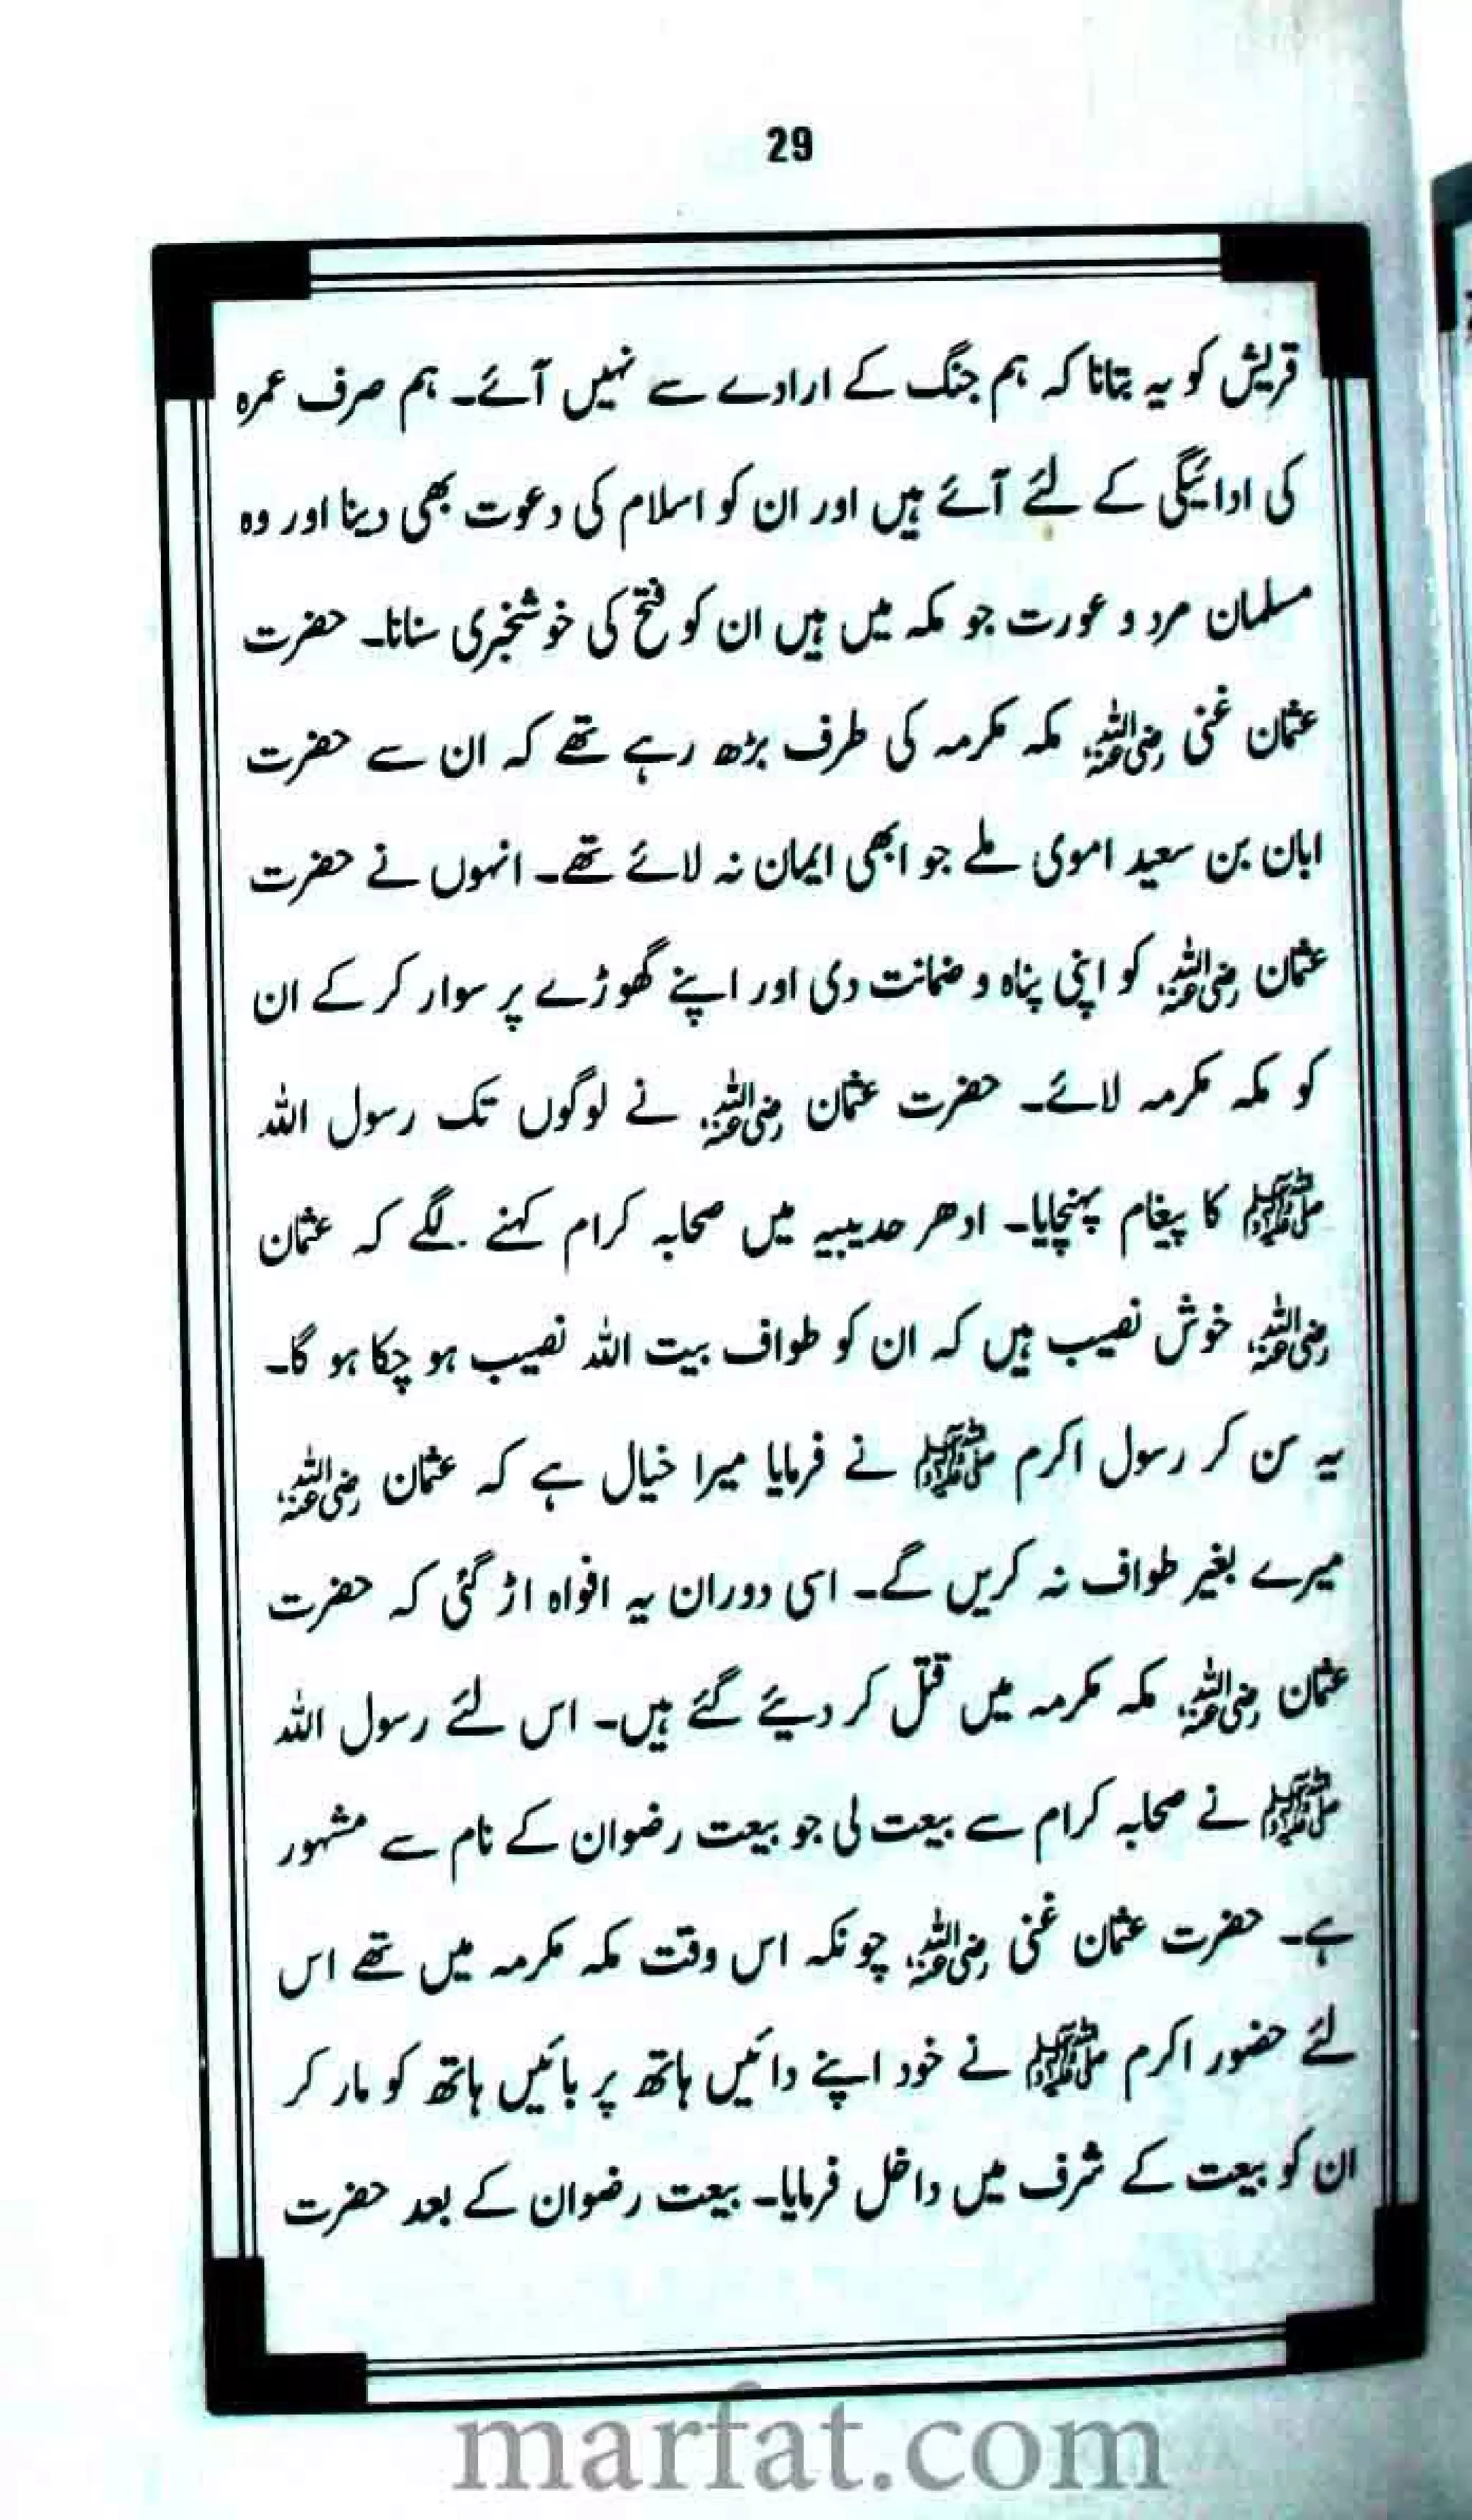 29
قریش کو یہ بتانا کہ ہم جنگ کے ارادے سے نہیں آئے۔ ہم صرف عمرہ
کی ادائیگی کے لئے آئے ہیں اور ان کو اسلام کی دعوت بھی دینا اور وہ
مسلمان مرد و عورت جو مکہ میں ہیں ان کو فتح کی خوشخبری سنانا۔ حضرت
عثمان غنی رضی اللہ عنہ مکہ مکرمہ کی طرف بڑھ رہے تھے کہ ان سے حضرت
ابان بن سعید اموی ملے جو ابھی ایمان نہ لائے تھے۔ انہوں نے حضرت
عثمان رضی اللہ عنہ کو اپنی پناہ و ضمانت دی اور اپنے گھوڑے پر سوار کر کے ان
کو مکہ مکرمہ لائے۔ حضرت عثمان رضی اللہ عنہ نے لوگوں تک رسول اللہ
ﷺ کا پیغام پہنچایا۔ ادھر حدیبیہ میں صحابہ کرام کہنے لگے کہ عثمان
رضی اللہ عنہ خوش نصیب ہیں کہ ان کو طواف بیت اللہ نصیب ہو چکا ہو گا۔
یہ سن کر رسول اکرم ﷺ نے فرمایا میرا خیال ہے کہ عثمان رضی اللہ عنہ
میرے بغیر طواف نہ کریں گے۔ اسی دوران یہ افواہ اڑ گئی کہ حضرت
عثمان رضی اللہ عنہ مکہ مکرمہ میں قتل کر دیئے گئے ہیں۔ اس لئے رسول اللہ
ﷺ نے صحابہ کرام سے بیعت لی جو بیعت رضوان کے نام سے مشہور
ہے۔ حضرت عثمان غنی رضی اللہ عنہ چونکہ اس وقت مکہ مکرمہ میں تھے اس
لئے حضور اکرم ﷺ نے خود اپنے دائیں ہاتھ پر بائیں ہاتھ کو مار کر
ان کو بیعت کے شرف میں داخل فرمایا۔ بیعت رضوان کے بعد حضرت
marfat.com